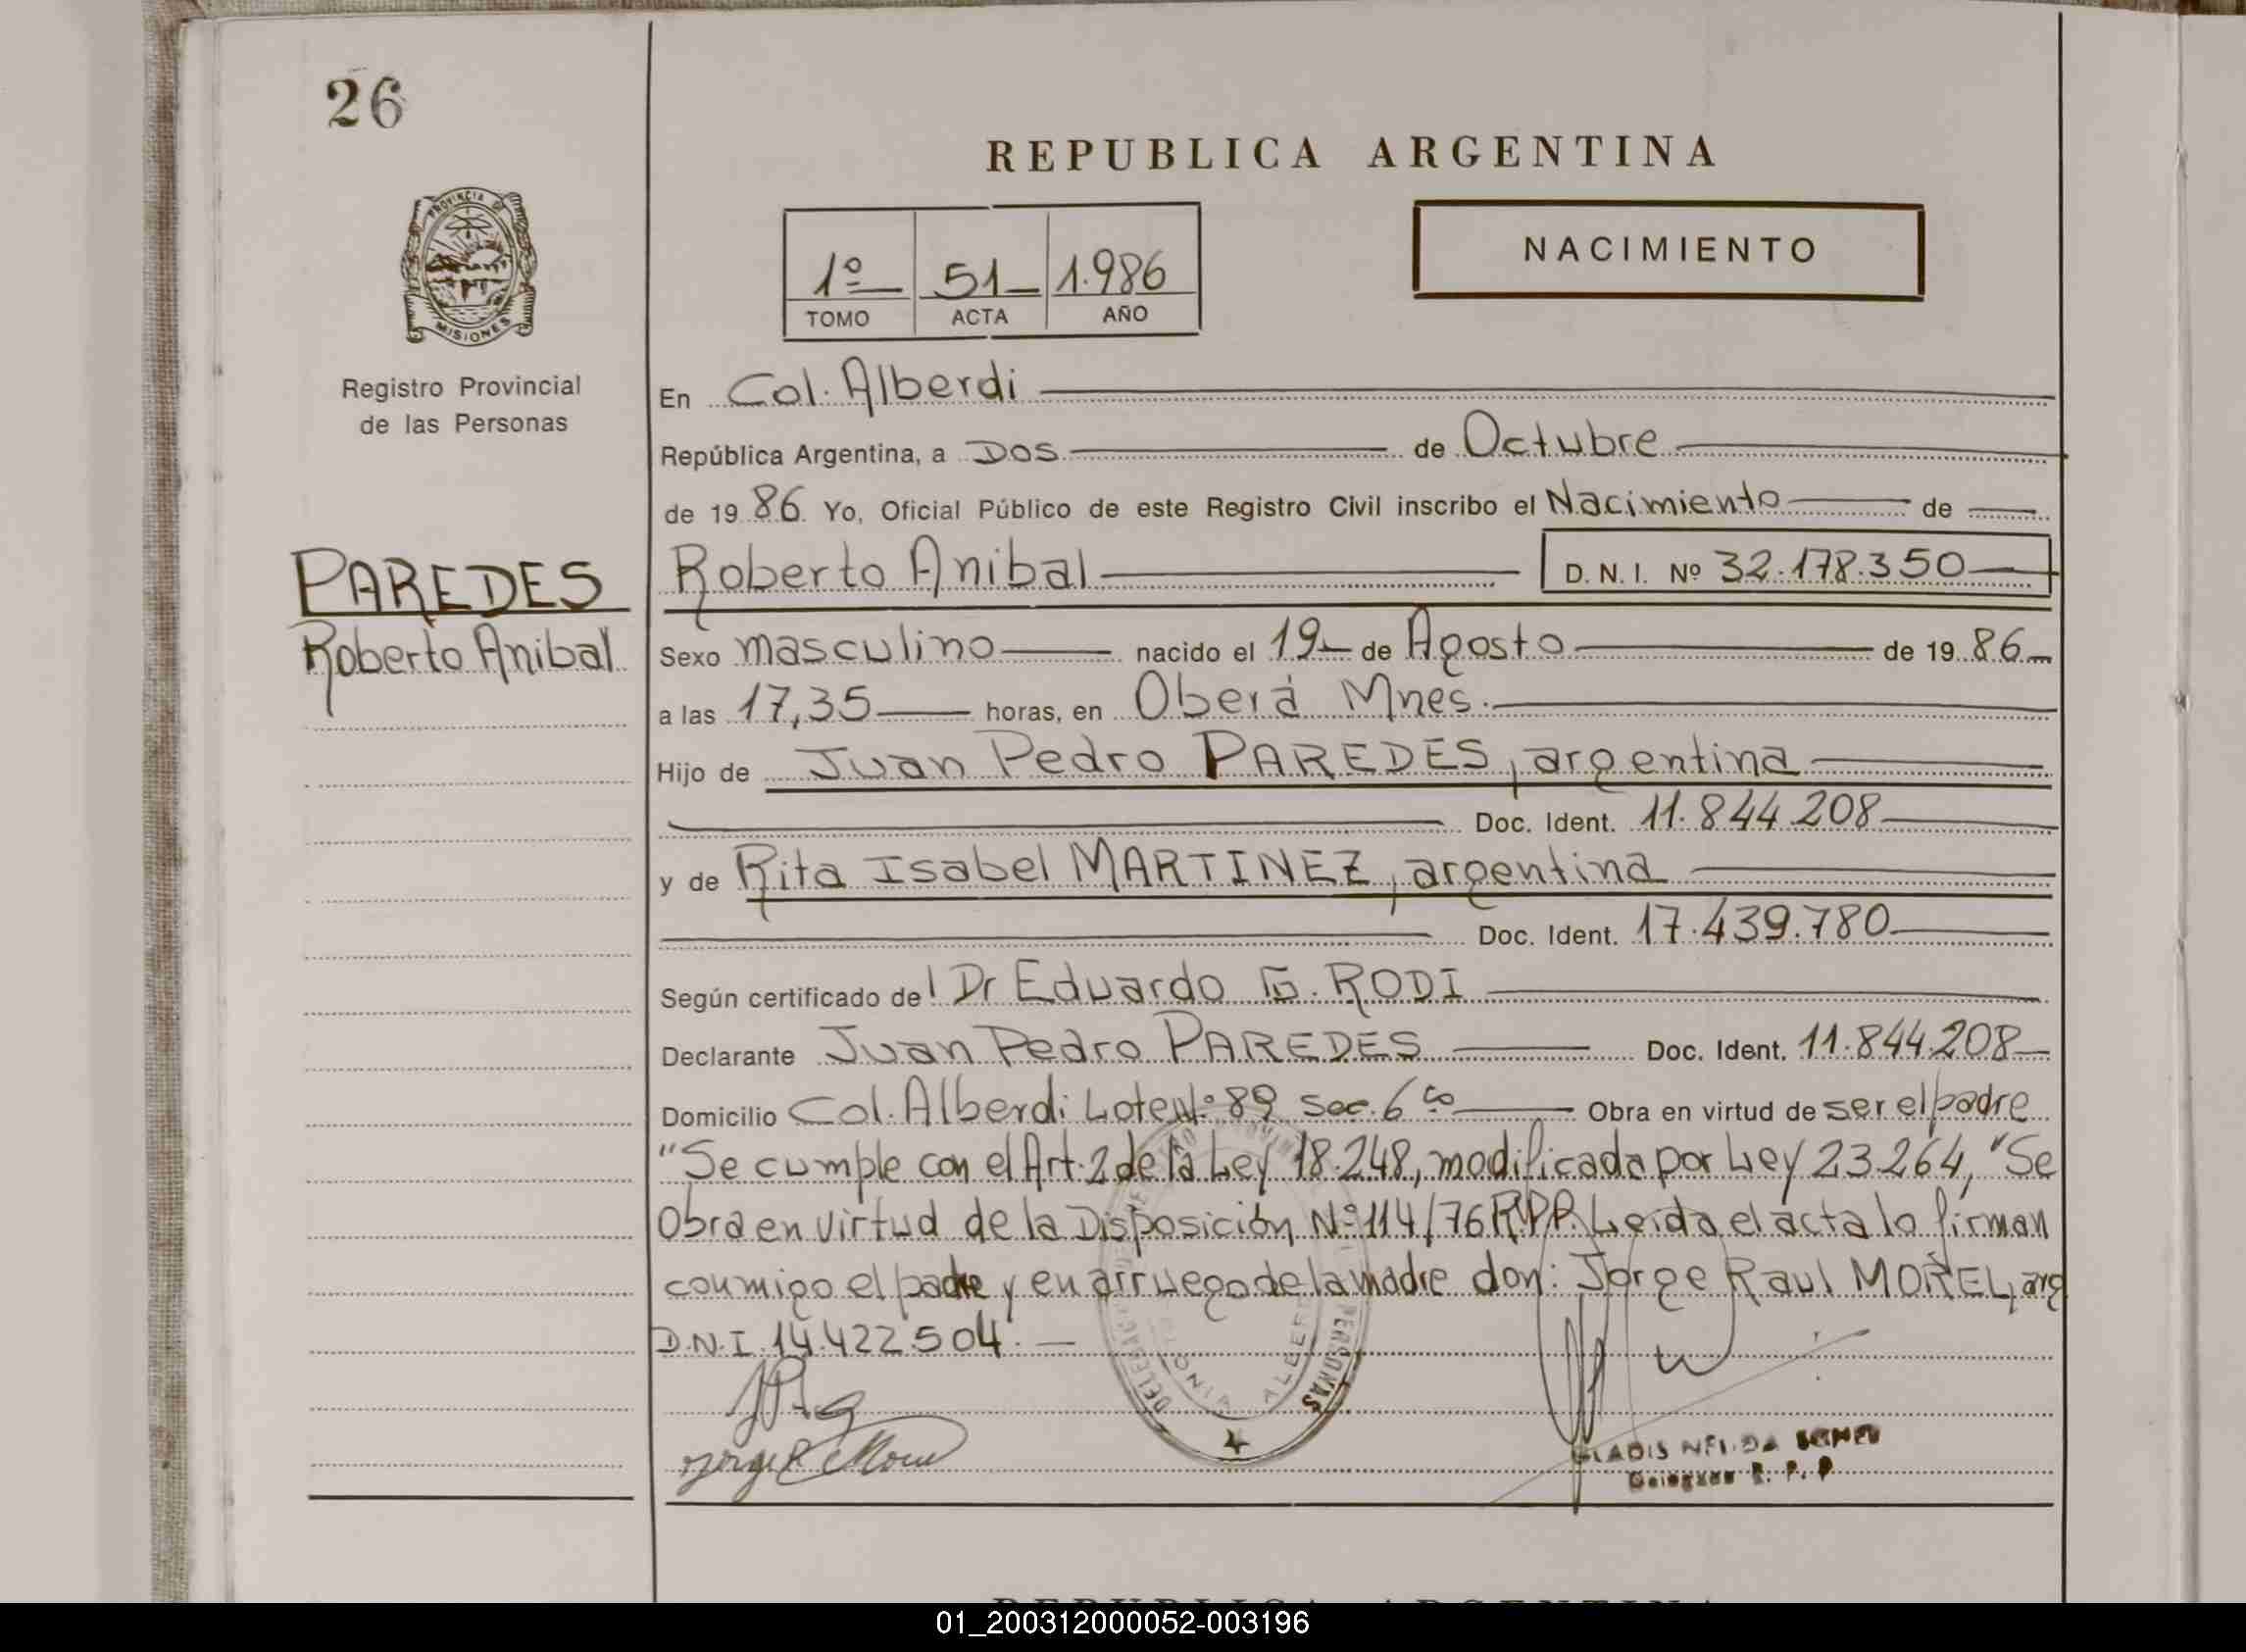 26
PROVINCIA DE
MISIONES
Registro Provincial
de las Personas
PAREDES
Roberto Anibal
REPUBLICA ARGENTINA
1º 51 1.986
TOMO ACTA AÑO
NACIMIENTO
En Col. Alberdi
República Argentina, a Dos de Octubre
de 19 86 Yo, Oficial Público de este Registro Civil inscribo el Nacimiento de
Roberto Anibal D. N. I. Nº 32.178.350
Sexo masculino nacido el 19 de Agosto de 19 86
a las 17,35 horas, en Oberá Mnes.
Hijo de Juan Pedro PAREDES, argentina
Doc. Ident. 11.844.208
y de Rita Isabel MARTINEZ, argentina
Doc. Ident. 17.439.780
Según certificado del Dr Eduardo G. RODI
Declarante Juan Pedro PAREDES Doc. Ident. 11.844.208
Domicilio Col. Alberdi Lote Nº 89 sec. 6º Obra en virtud de ser el padre
"Se cumple con el Art. 2 de la Ley 18.248, modificada por Ley 23.264, "Se
Obra en virtud de la Disposición Nº 114/76 R.P.P. Leida el acta lo firman
conmigo el padre y en arruego de la madre don: Jorge Raul MOREL, arg
D.N.I. 14.422.504. —
PERSONAS
GLADIS NELIDA
Delegada R. P. P
REPUBLICA ARGENTINA
01_200312000052-003196